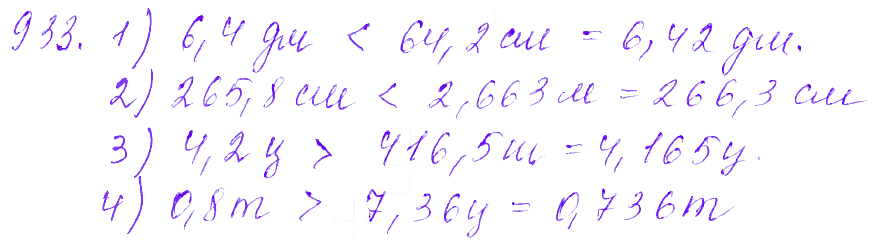 933. 1) 6,4 дм < 64,2 см = 6,42 дм.
2) 265,8 см < 2,663 м = 266,3 см
3) 4,2 ц > 416,5 кг = 4,165 ц.
4) 0,8 т > 7,36 ц = 0,736 т